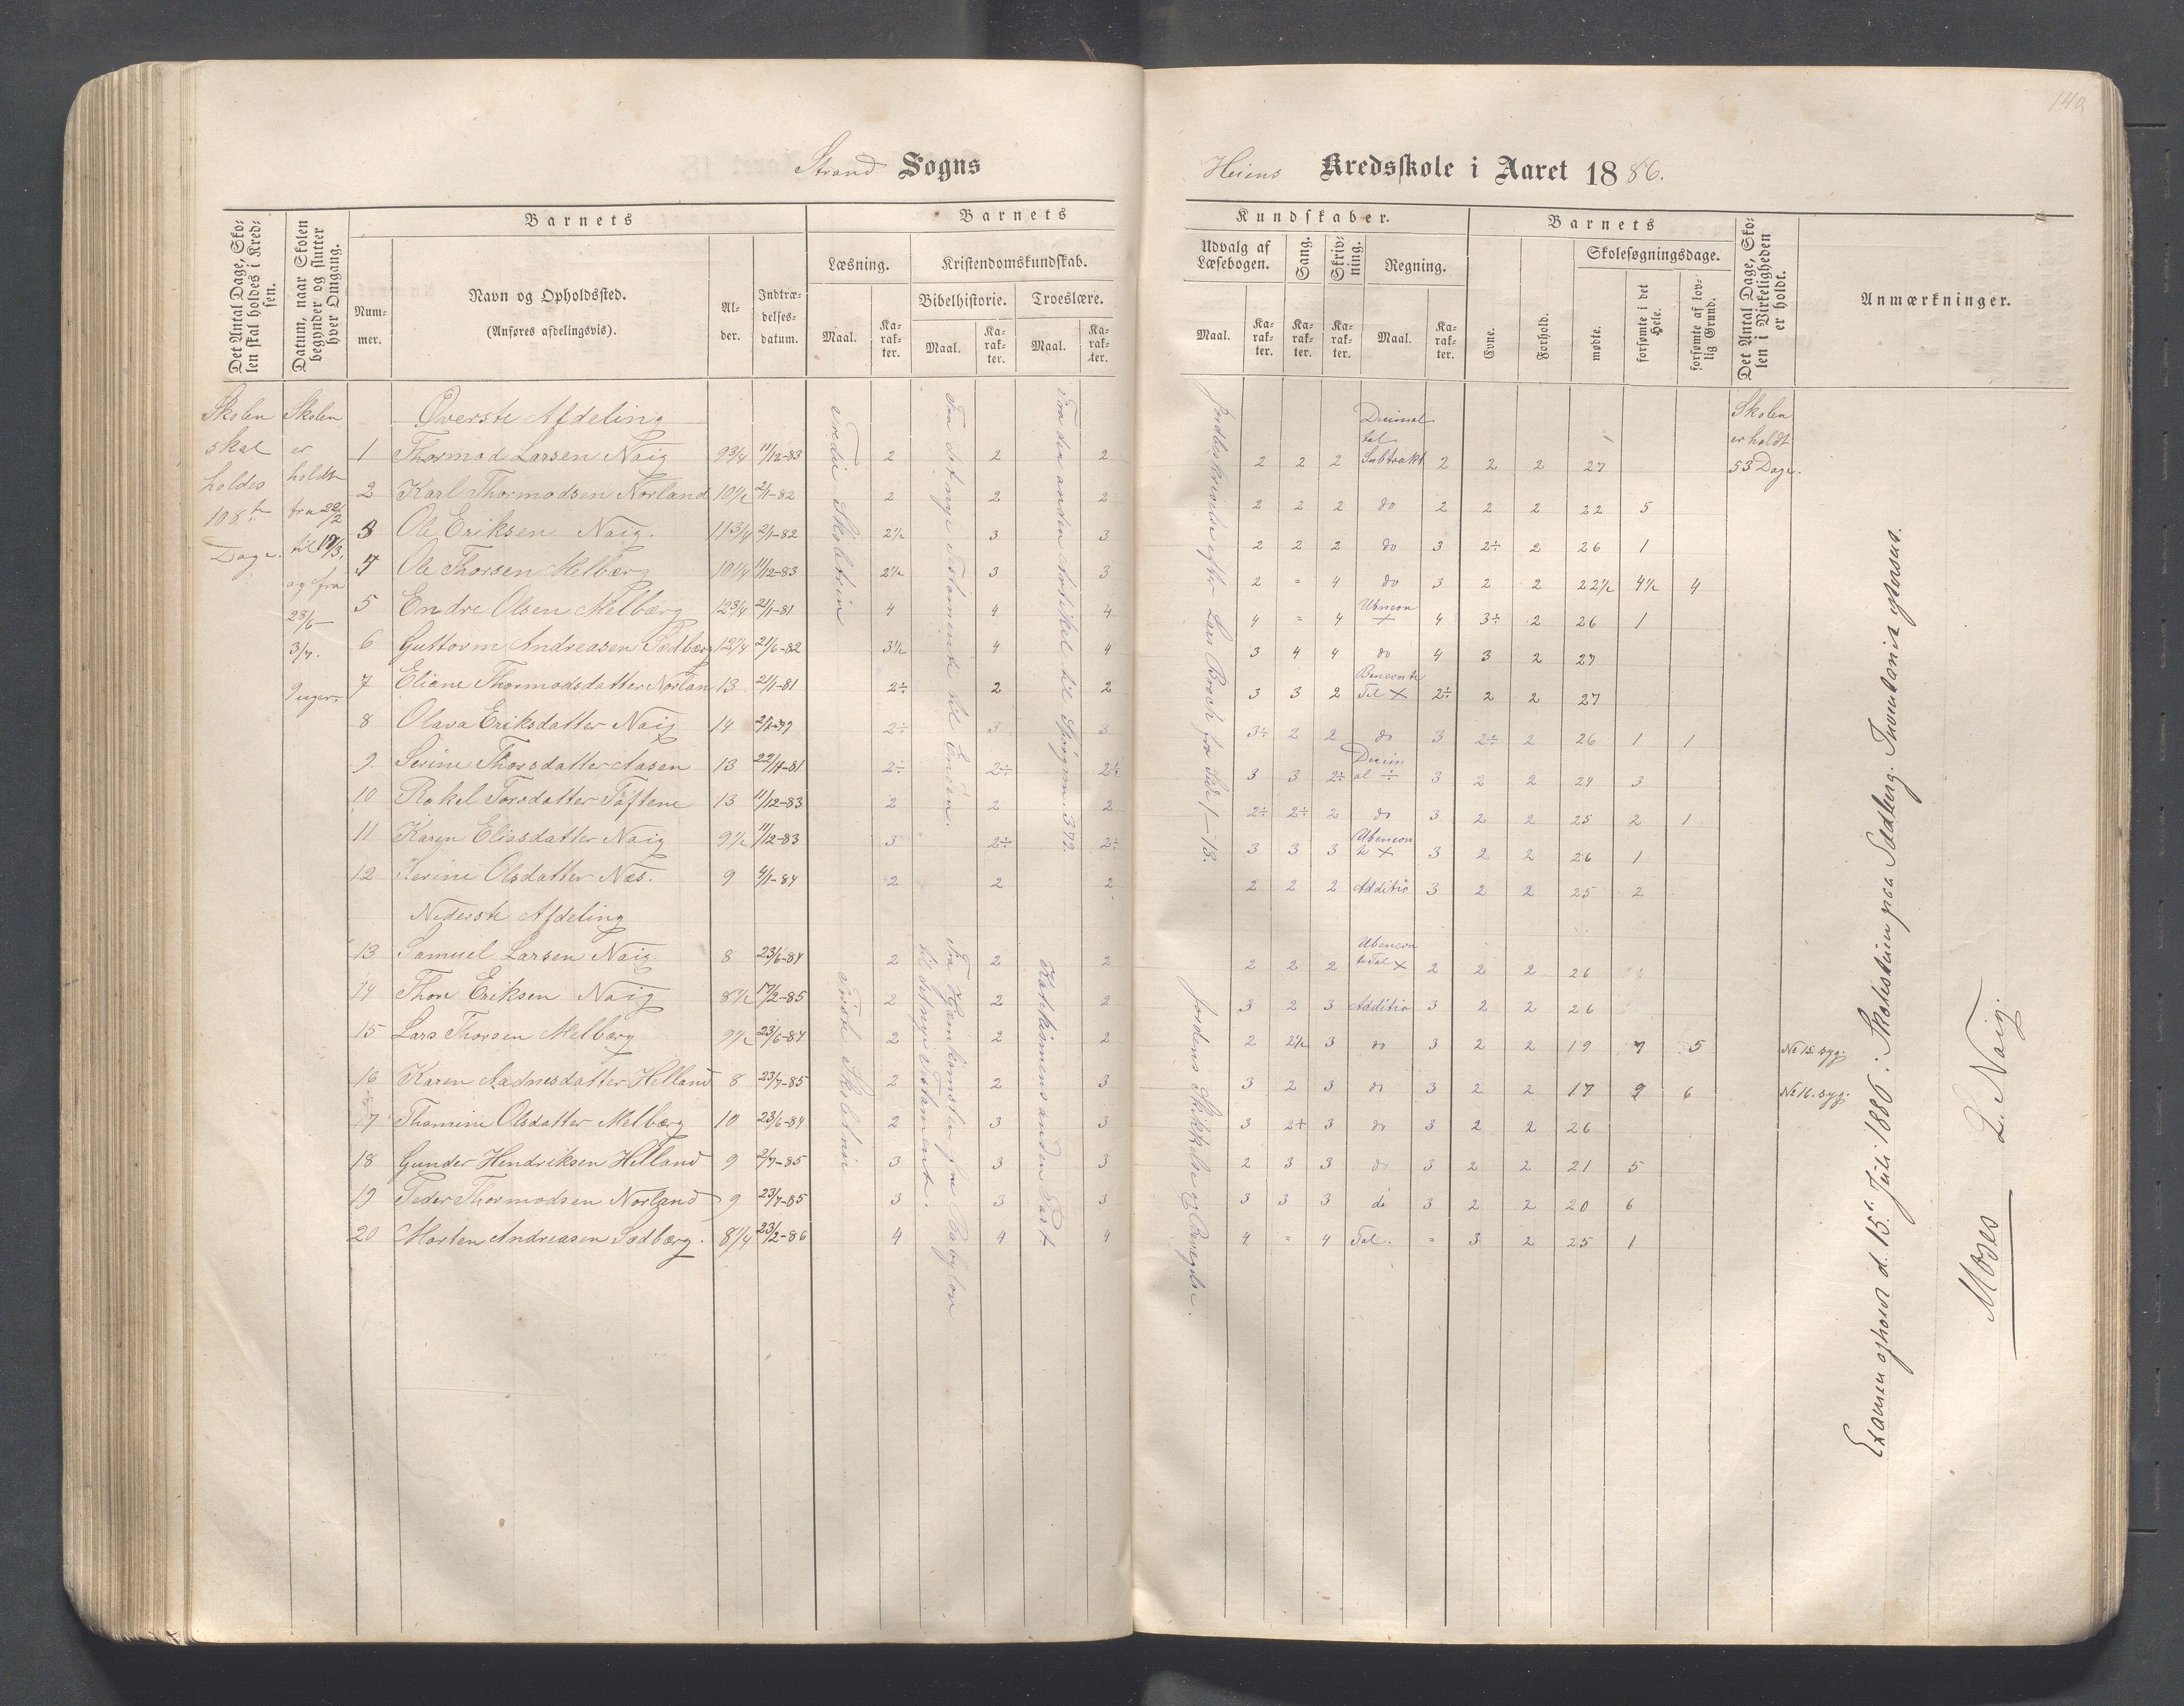 140
Strand Sogns
Heiens Kredsskole i Aaret 1886.
Det Antal Dage, Sko-
len skal holdes i Kred-
sen.
Datum, naar Skolen
begynder og slutter
hver Omgang.
Barnets
Num-
mer.
Navn og Opholdssted.
(Anføres afdelingsvis).
Al-
der.
Indtræ-
delses-
datum.
Barnets
Læsning.
Kristendomskundskab.
Bibelhistorie.
Troeslære.
Maal.
Ka-
rak-
ter.
Maal.
Ka-
rak-
ter.
Maal.
Ka-
rak-
ter.
Kundskaber.
Udvalg af
Læsebogen.
Sang.
Skriv-
ning.
Regning.
Maal.
Ka-
rak-
ter.
Ka-
rak-
ter.
Ka-
rak-
ter.
Maal.
Ka-
rak-
ter.
Barnets
Evne.
Forhold.
Skolesøgningsdage.
mødte.
forsømte i det
Hele.
forsømte af lov-
lig Grund.
Det Antal Dage, Sko-
len i Virkeligheden
er holdt.
Anmærkninger.
Skolen
skal
holdes
108te
Dage.
Skolen
er
holdt
fra 22/2
til 17/3,
og fra
23/6—
3/7.
9 uger.
Øverste Afdeling
1 Thormod Larsen Naig 9 3/4 11/12-83 2 2 2 2 2 2 Decimal tal Subtrakt 2 2 2 27
2 Karl Thormodsen Norland 10 1/2 2/1-82 2 2 2 2 2 2 do 2 2 2 22 5
3 Ole Eriksen Naig. 11 3/4 2/1-82 2 1/2 3 3 2 2 2 do 3 2÷ 2 26 1
4 Ole Thorsen Melbærg 10 1/4 11/12-83 2 1/2 3 3 2 " 4 do 3 2 2 22 1/2 4 1/2 4
5 Endre Olsen Melbærg 12 3/4 21/1-81 4 4 4 4 " 4 Ubenevn × 4 3÷ 2 26 1
6 Guttorm Andreasen Sødbærg 12 1/4 21/6-82 3 1/2 4 4 3 4 4 do 4 3 2 27
7 Eliane Thormodsdatter Norlan 13 21/1-81 2÷ 2 2 3 3 2 Benevnte Tal × 2÷ 2 2 27
8 Olava Eriksdatter Naig 14 2÷ 3 3 3÷ 2 2 do 3 2÷ 2 26 1 1
9. Serine Thorsdatter Aasen 13 22/4-81 2÷ 2÷ 2÷ 3 3 2÷ Decimal ÷ 3 2 2 24 3
10 Rakel Torsdatter Tøftene 13 11/12-83 2 2 2 2÷ 2÷ 2 do 3 2 2 25 2 1
11 Karen Eliasdatter Naig 9 1/2 11/12-83 3 2÷ 2÷ 3 3 3 Ubenevnte × 3 2 2 26 1
12 Serine Olsdatter Næs. 9 4/1-84 2 2 2 2 2 2 Additio 3 2 2 25 2
Nederste Afdeling
13 Samuel Larsen Naig 8 23/6-84 2 2 2 2 2 2 Ubenevnte Tal × 2 2 2 26
14 Thore Eriksen Naig 8 1/2 17/2-85 2 2 2 3 2 3 Additio 3 2 2 26
15 Lars Thorsen Melbærg 9 1/2 23/6-84 2 2 2 2 2 1/2 3 do 3 2 2 19 7 5 No 15. syg.
16 Karen Aadnesdatter Helland 8 23/7-85 2 2 3 3 2 3 do 3 2 2 17 9 6 No 16. syg.
17 Thomine Olsdatter Melbærg 10 23/6-84 2 3 3 3 2+ 3 do 3 2 2 26
18 Gunder Hendriksen Helland 9 2/7-85 3 3 3 2 3 3 do 3 2 2 21 5
19 Peder Thormodsen Norland 9 23/7-85 3 3 3 3 3 3 do 3 2 2 20 6
20 Morten Andreasen Sødbærg. 8 1/4 23/2-86 4 4 4 4 " 4 Tal. " 3 2 25 1
Tredie Skoletrin
Fra det nye Testamente til Enden.
Fra den anden Artikel til Spørgsm. 372.
Jordbeskrivelse efter Lars Broch fra Side 1—13.
Første Skoletrin
Fra Hjemkomsten fra Babylon
til det nye Testamente.
Katekismens anden Part
Jordens Skikkelse og Bevægelse.
Skolen
er holdt
53 Dage.
Examen afholdt d. 15de Juli 1886: Skolestuen paa Sødberg. Inventariet eftersus.
Moses L. Naig.